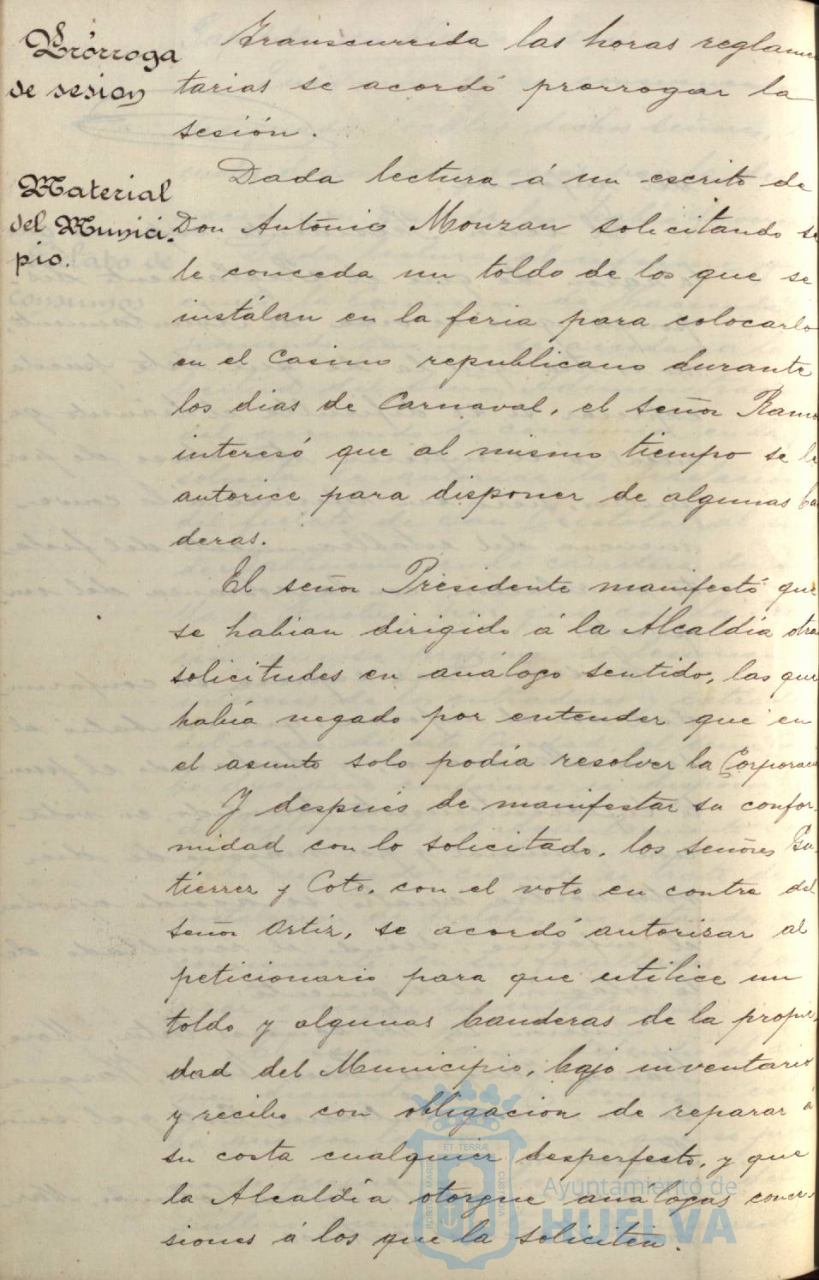 Prórroga
de sesion
Transcurrida las horas reglamen
tarias se acordó prorrogar la
sesión.
Material
del Munici-
pio.
Dada lectura á un escrito de
Don António Monzan solicitando se
le conceda un toldo de los que se
instálan en la feria para colocarlo
en el Casino republicano durante
los dias de Carnaval, el señor Ramo
interesó que al mismo tiempo se le
autorice para disponer de algunas ba
deras.
El señor Presidente manifestó que
se habian dirigido á la Alcaldía otra
solicitudes en análogo sentido, las que
había negado por entender que en
el asunto solo podía resolver la Corporació
Y después de manifestar su confor-
midad con lo solicitado, los señores Gu
tierrez y Coto, con el voto en contra del
señor Ortiz, se acordó autorizar al
peticionario para que utilice un
toldo y algunas banderas de la propie-
dad del Municipio, bajo inventario
y recibo con obligacion de reparar á
su costa cualquier desperfecto, y que
la Alcaldía otorgue analogas conce-
siones á los que la soliciten.
Ayuntamiento de
HUELVA